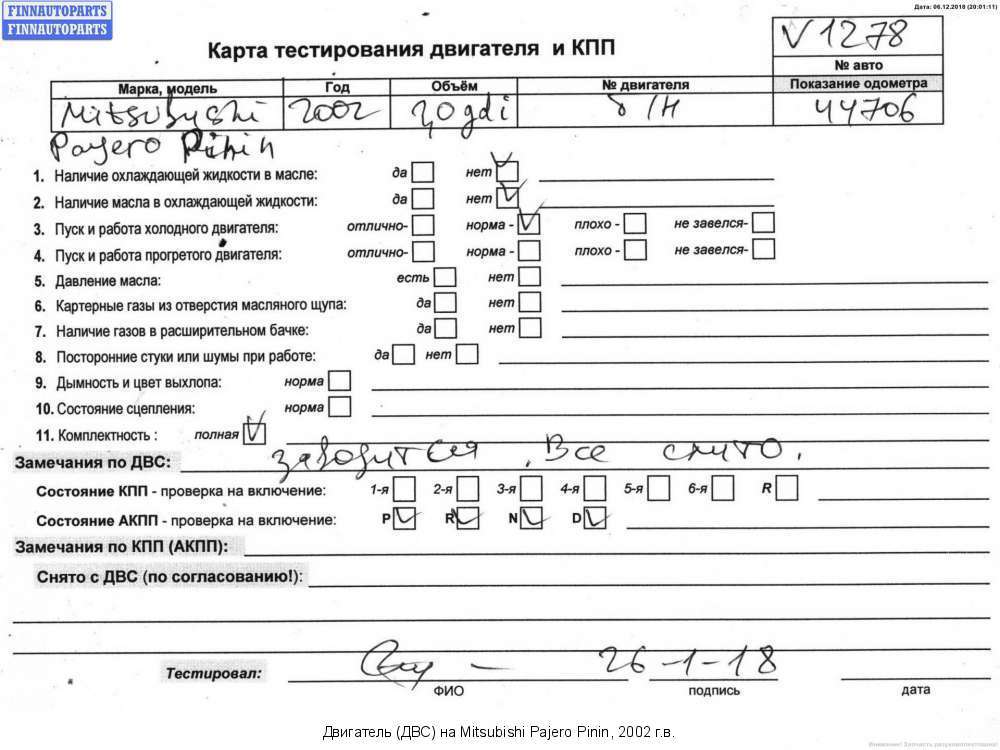 FINNAUTOPARTS
FINNAUTOPARTS
Дата: 06.12.2018 (20:01:11)
Карта тестирования двигателя и КПП
V1278
№ авто
Марка, модель Год Объём № двигателя Показание одометра
Mitsubyshi 2002 2,0 gdi б/н 44706
Pajero Pinin
1. Наличие охлаждающей жидкости в масле: да нет
2. Наличие масла в охлаждающей жидкости: да нет
3. Пуск и работа холодного двигателя: отлично- норма - плохо - не завелся-
4. Пуск и работа прогретого двигателя: отлично- норма - плохо - не завелся-
5. Давление масла: есть нет
6. Картерные газы из отверстия масляного щупа: да нет
7. Наличие газов в расширительном бачке: да нет
8. Посторонние стуки или шумы при работе: да нет
9. Дымность и цвет выхлопа: норма
10. Состояние сцепления: норма
11. Комплектность : полная
Замечания по ДВС: заводится, Все снито.
Состояние КПП - проверка на включение: 1-я 2-я 3-я 4-я 5-я 6-я R
Состояние АКПП - проверка на включение: P R N D
Замечания по КПП (АКПП):
Снято с ДВС (по согласованию!):
Тестировал: 26-1-18
ФИО подпись дата
Двигатель (ДВС) на Mitsubishi Pajero Pinin, 2002 г.в.
Внимание! Запчасть разукомплектована!